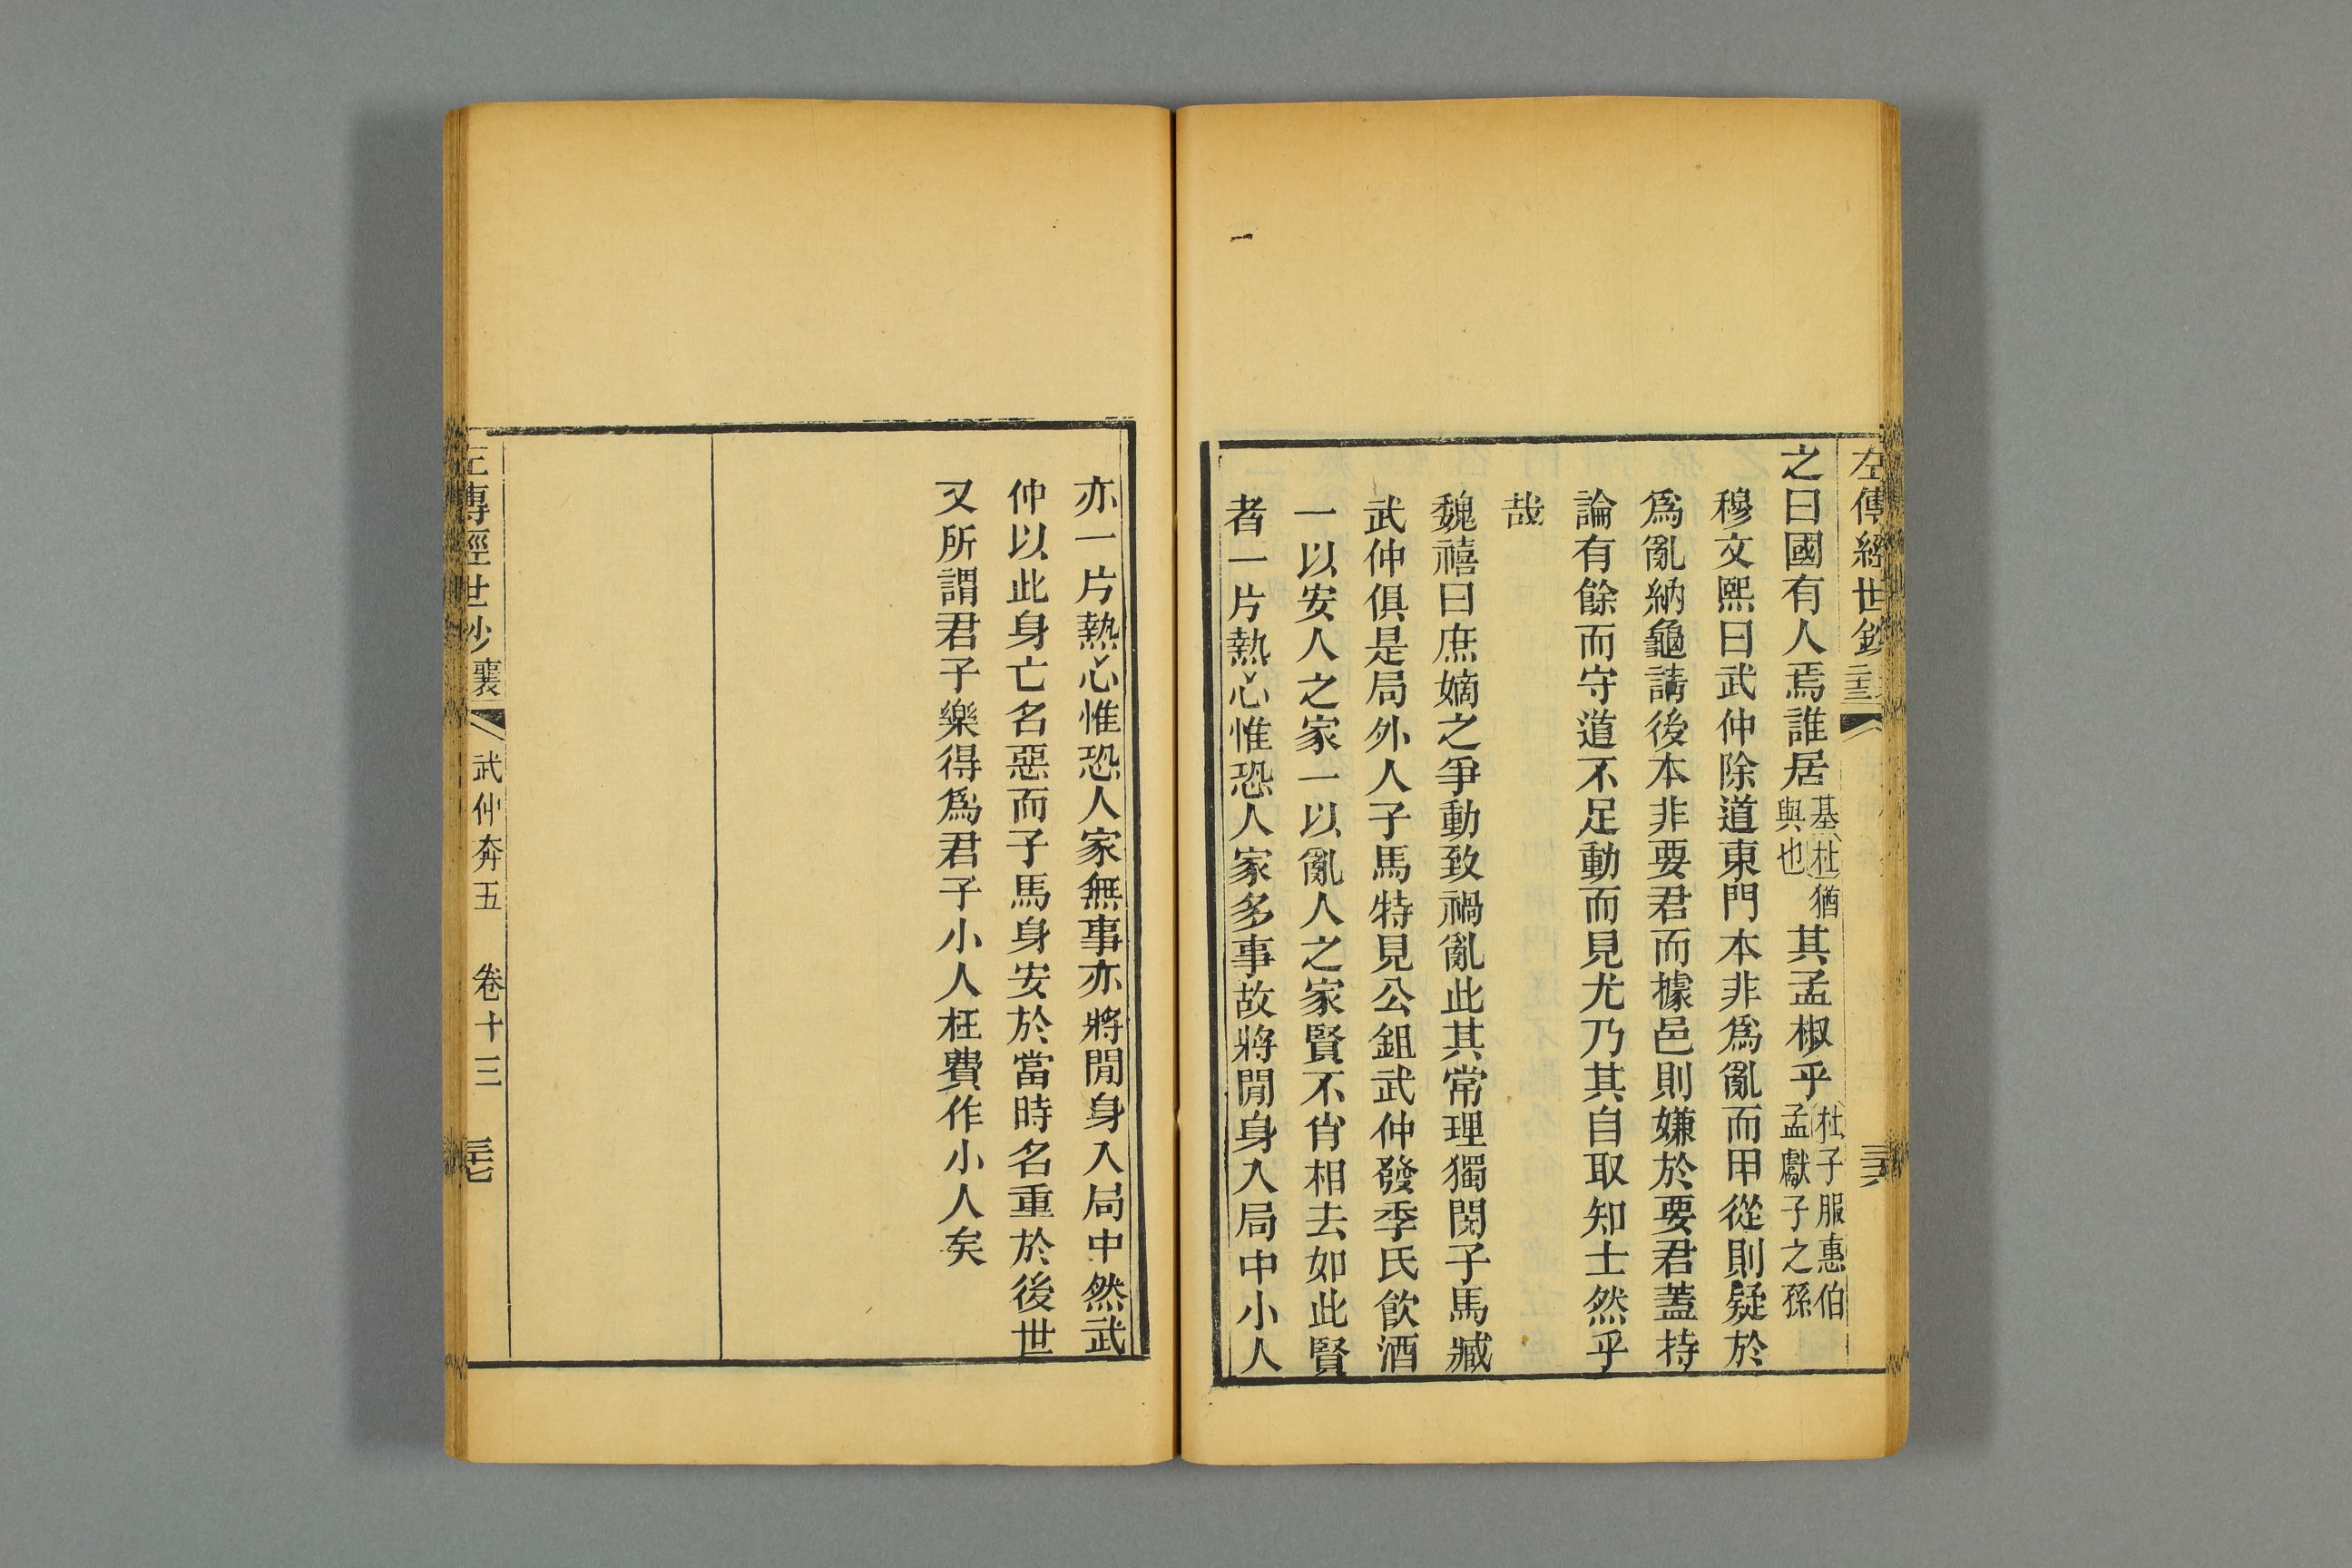 左傳經世鈔
之曰國有人焉誰居基杜猶與也其孟椒乎杜子服惠伯孟獻子之孫
穆文熙曰武仲除道東門本非爲亂而甲從則疑於
爲亂納龜請後本非要君而據邑則嫌於要君蓋持
論有餘而守道不足動而見尤乃其自取知士然乎
哉
魏禧曰庶嫡之爭動致禍亂此其常理獨閔子馬臧
武仲俱是局外人子馬特見公鉏武仲發季氏飮酒
一以安人之家一以亂人之家賢不肖相去如此賢
者一片熱心惟恐人家多事故將閒身入局中小人
亦一片熱心惟恐人家無事亦將閒身入局中然武
仲以此身亡名惡而子馬身安於當時名重於後世
又所謂君子樂得爲君子小人枉費作小人矣
左傳經世鈔 襄 武仲奔五 卷十三